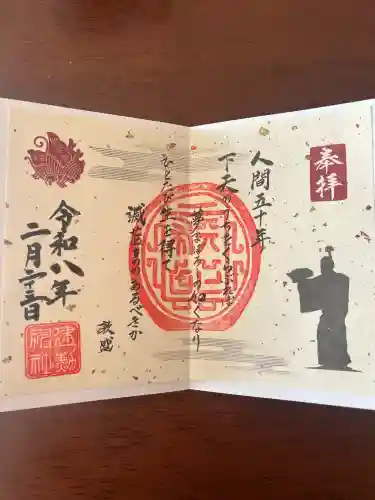 奉拝
人間五十年
下天のうちをくらぶれば
夢まぼろしの如くなり
ひとたび生を得て
滅せぬものあるべきか
敦盛
令和八年
二月二十三日
建勲神社